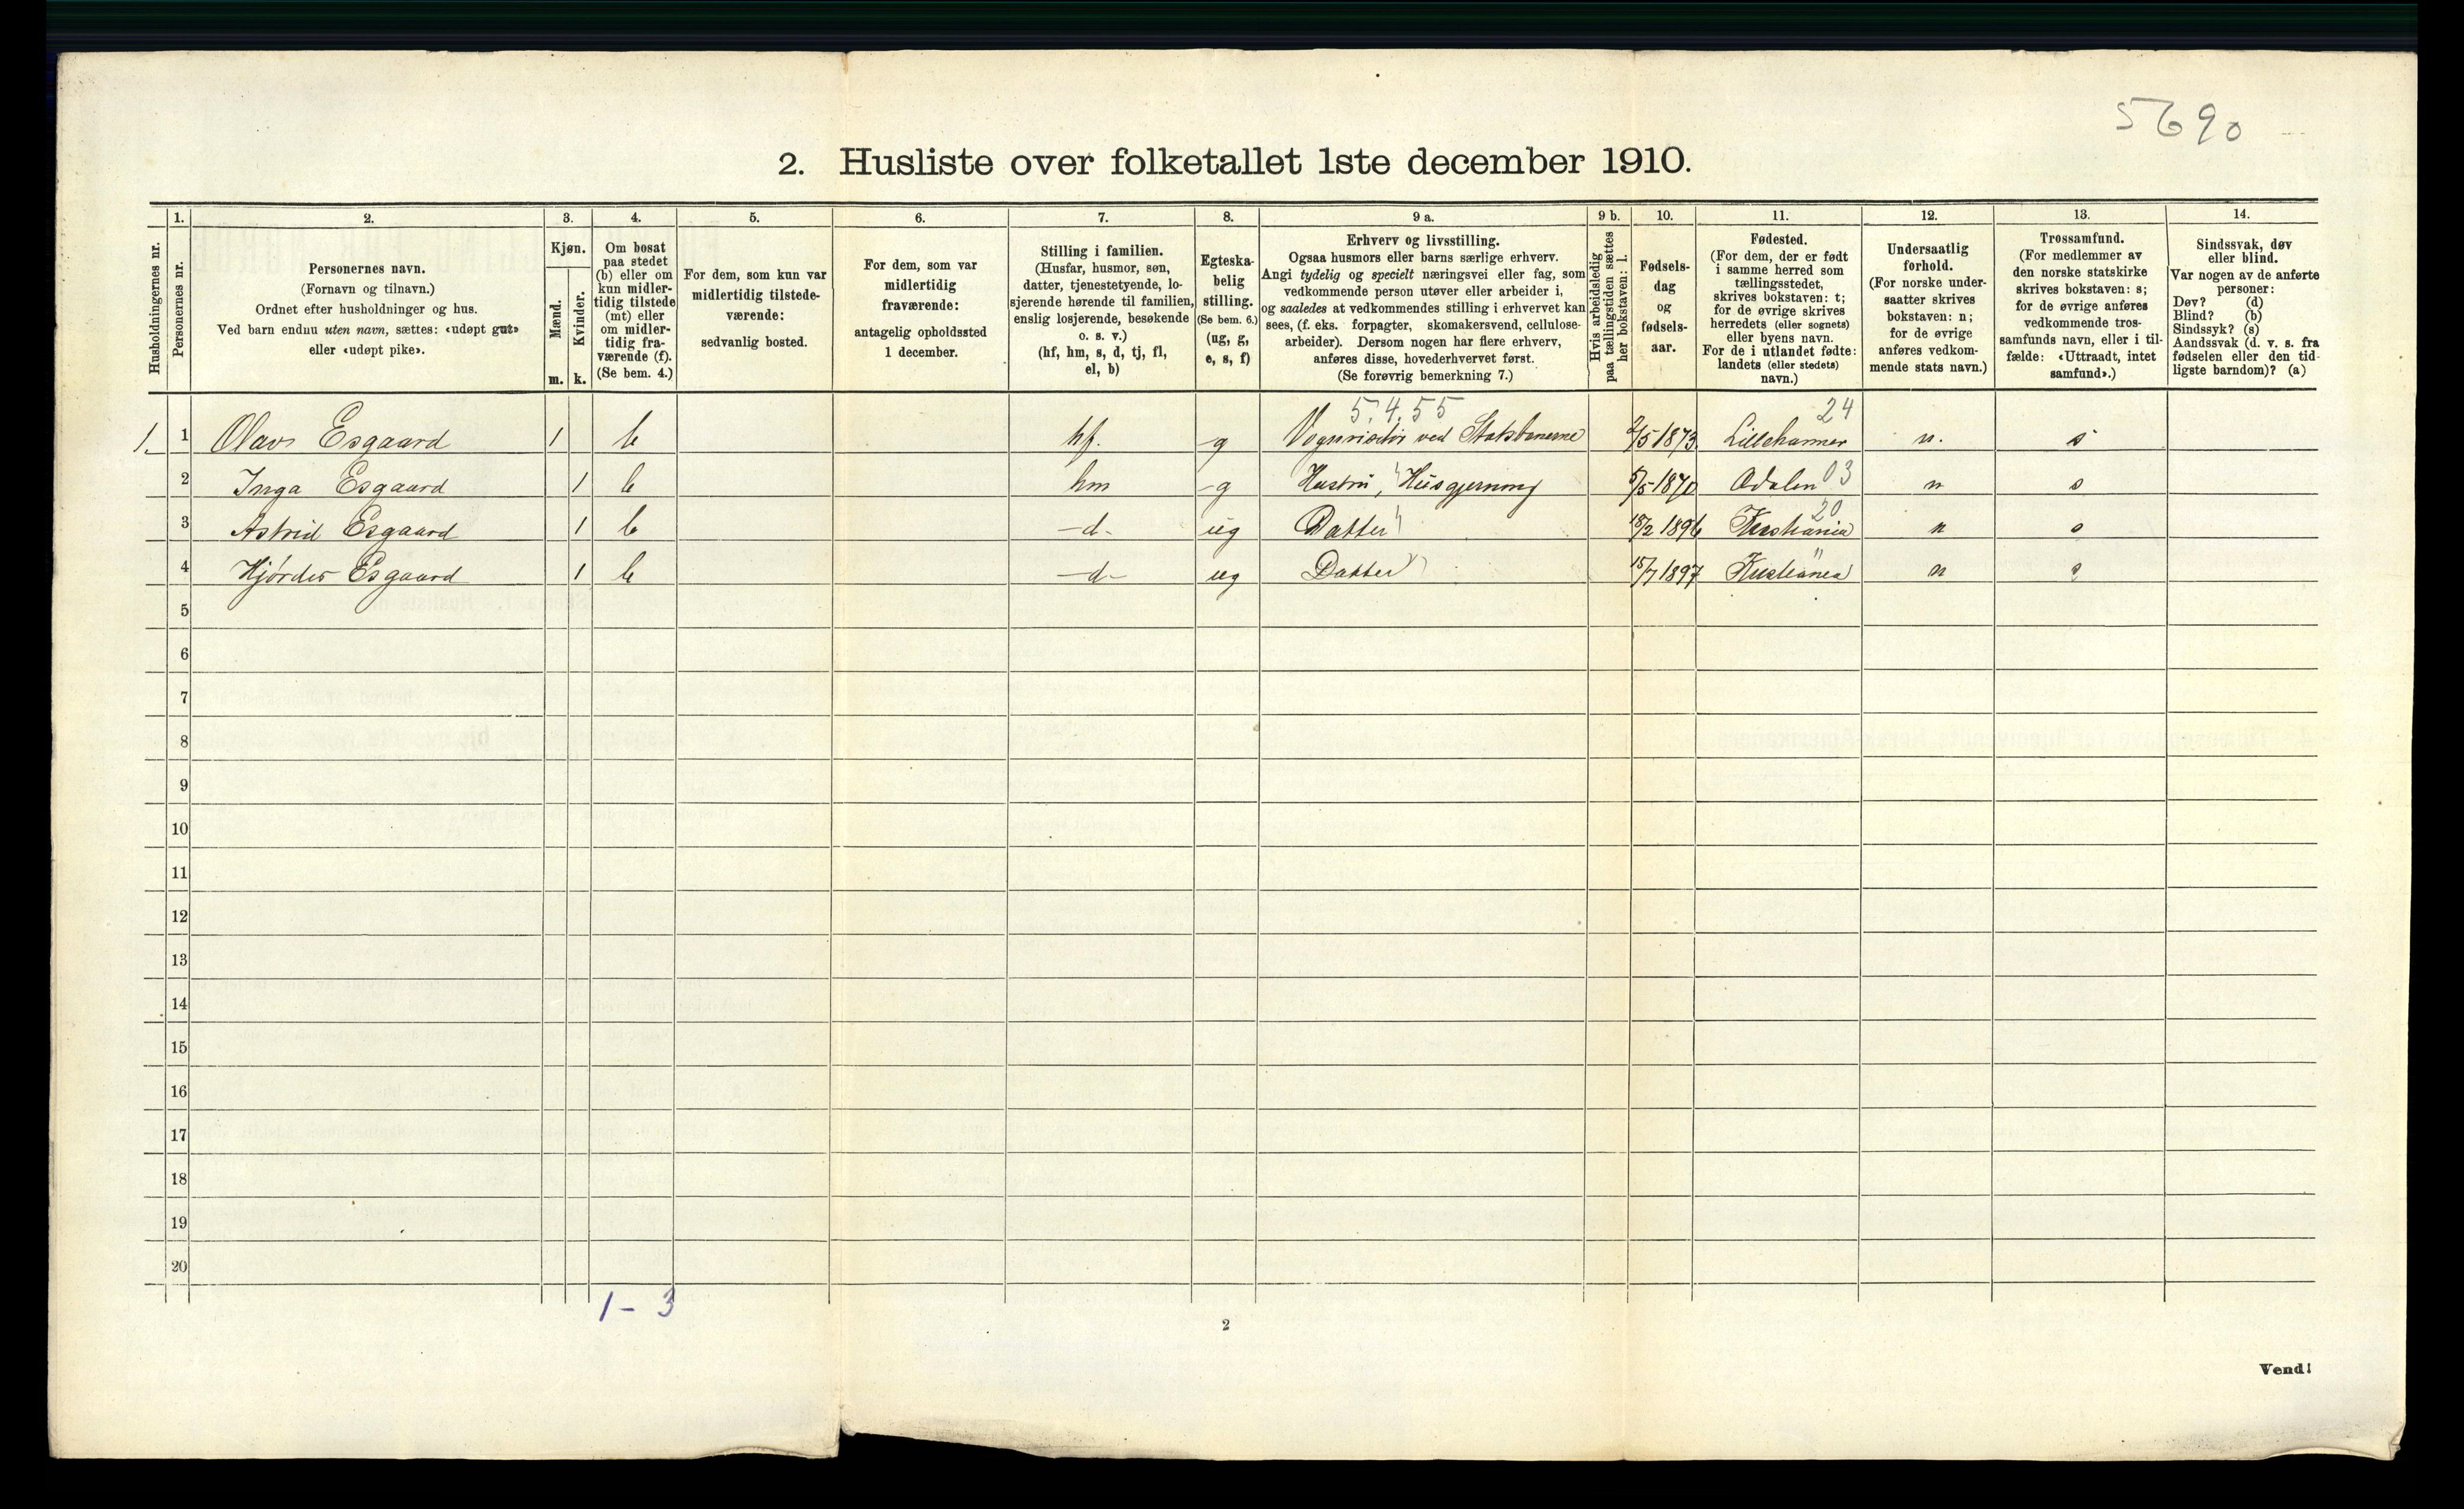 5690
2. Husliste over folketallet 1ste december 1910.
Husholdningernes nr.
1.
Personernes nr.
2.
Personernes navn.
(Fornavn og tilnavn.)
Ordnet efter husholdninger og hus.
Ved barn endnu uten navn, sættes: «udøpt gut»
eller «udøpt pike».
3.
Kjøn.
Mænd.
Kvinder.
m. k.
4.
Om bosat
paa stedet
(b) eller om
kun midler-
tidig tilstede
(mt) eller
om midler-
tidig fra-
værende (f).
(Se bem. 4.)
5.
For dem, som kun var
midlertidig tilstede-
værende:
sedvanlig bosted.
6.
For dem, som var
midlertidig
fraværende:
antagelig opholdssted
1 december.
7.
Stilling i familien.
(Husfar, husmor, søn,
datter, tjenestetyende, lo-
sjerende hørende til familien,
enslig losjerende, besøkende
o. s. v.)
(hf, hm, s, d, tj, fl,
el, b)
8.
Egteska-
belig
stilling.
(Se bem. 6.)
(ug, g,
e, s, f)
9 a.
Erhverv og livsstilling.
Ogsaa husmors eller barns særlige erhverv.
Angi tydelig og specielt næringsvei eller fag, som
vedkommende person utøver eller arbeider i,
og saaledes at vedkommendes stilling i erhvervet kan
sees, (f. eks. forpagter, skomakersvend, cellulose-
arbeider). Dersom nogen har flere erhverv,
anføres disse, hovederhvervet først.
(Se forøvrig bemerkning 7.)
9 b.
Hvis arbeidsledig
paa tællingstiden sættes
her bokstaven: l.
10.
Fødsels-
dag
og
fødsels-
aar.
11.
Fødested.
(For dem, der er født
i samme herred som
tællingsstedet,
skrives bokstaven: t;
for de øvrige skrives
herredets (eller sognets)
eller byens navn.
For de i utlandet fødte:
landets (eller stedets)
navn.)
12.
Undersaatlig
forhold.
(For norske under-
saatter skrives
bokstaven: n;
for de øvrige
anføres vedkom-
mende stats navn.)
13.
Trossamfund.
(For medlemmer av
den norske statskirke
skrives bokstaven: s;
for de øvrige anføres
vedkommende tros-
samfunds navn, eller i til-
fælde: «Uttraadt, intet
samfund».)
14.
Sindssvak, døv
eller blind.
Var nogen av de anførte
personer:
Døv? (d)
Blind? (b)
Sindssyk? (s)
Aandssvak (d. v. s. fra
fødselen eller den tid-
ligste barndom)? (a)
5.4.55 24
1. 1 Olavs Esgaard 1 b hf. g Vognvisitør ved Statsbanerne 2/5 1873 Lillehammer n. s
2 Inga Esgaard 1 b hm g Hustru, Husgjerning 5/5 1870 Odalen 03 n s
20
3 Astrid Esgaard 1 b -d- ug Datter 18/2 1896 Kristiania n s
4 Hjørdis Esgaard 1 b -d- ug Datter 15/7 1897 Kristiania n s
5
6
7
8
9
10
11
12
13
14
15
16
17
18
19
20
1-3
2
Vend!